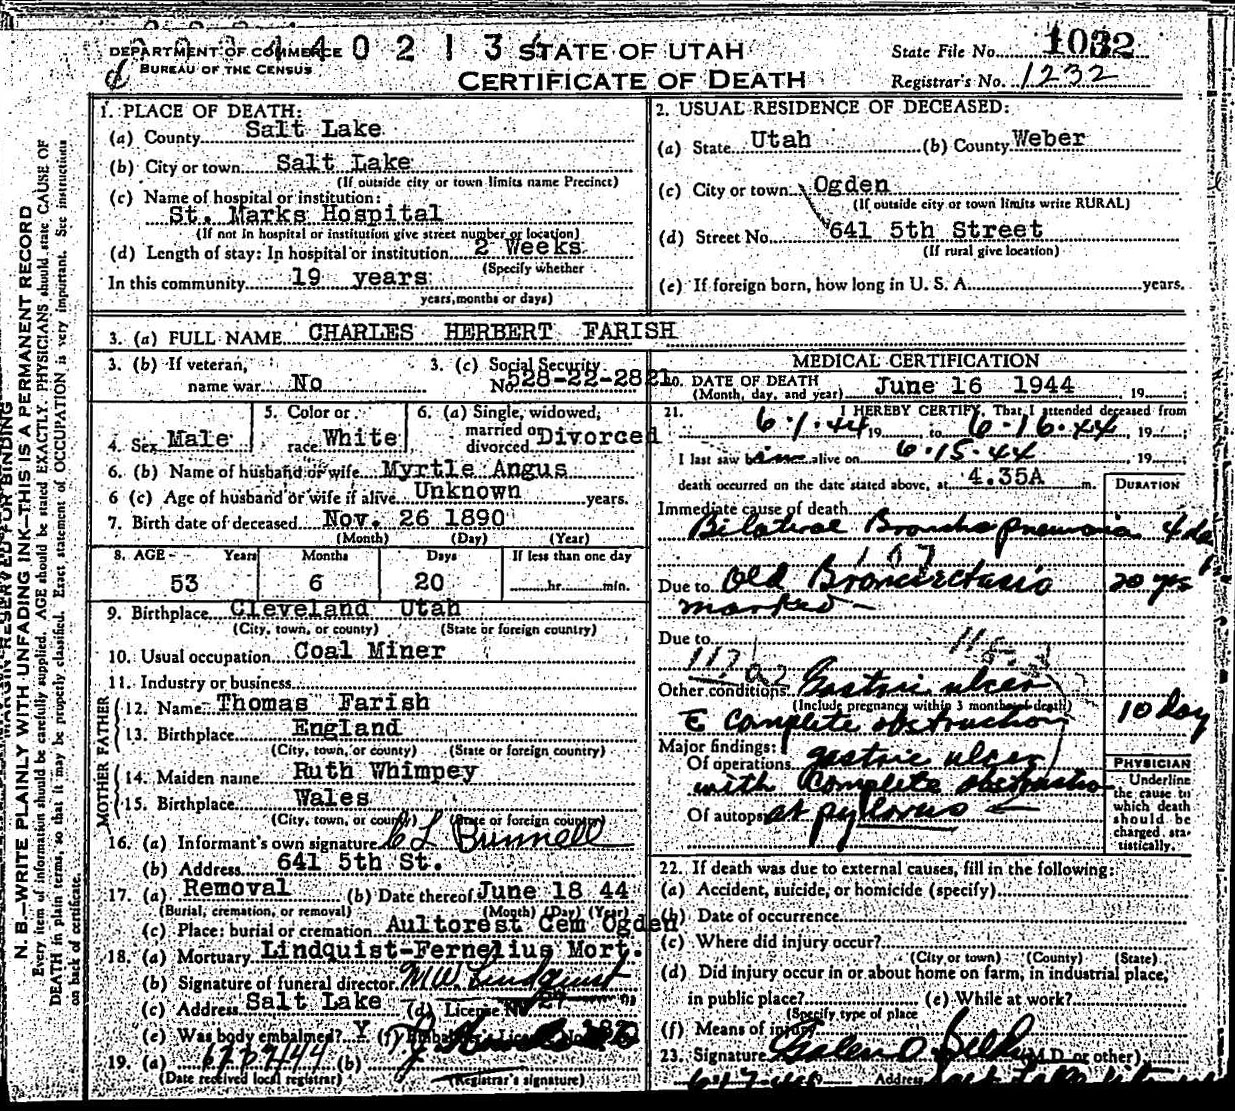 40213
DEPARTMENT OF COMMERCE
BUREAU OF THE CENSUS
STATE OF UTAH
CERTIFICATE OF DEATH
State File No. 1032
Registrar's No. 1232
MARGIN RESERVED FOR BINDING
N. B.—WRITE PLAINLY WITH UNFADING INK—THIS IS A PERMANENT RECORD
Every item of information should be carefully supplied. AGE should be stated EXACTLY. PHYSICIANS should state CAUSE OF
DEATH in plain terms, so that it may be properly classified. Exact statement of OCCUPATION is very important. See instructions
on back of certificate.
1. PLACE OF DEATH:
(a) County Salt Lake
(b) City or town Salt Lake
(If outside city or town limits name Precinct)
(c) Name of hospital or institution:
St. Marks Hospital
(If not in hospital or institution give street number or location)
(d) Length of stay: In hospital or institution 2 Weeks
(Specify whether
In this community 19 years
years, months or days)
2. USUAL RESIDENCE OF DECEASED:
(a) State Utah (b) County Weber
(c) City or town Ogden
(If outside city or town limits write RURAL)
(d) Street No. 641 5th Street
(If rural give location)
(e) If foreign born, how long in U. S. A. years.
3. (a) FULL NAME CHARLES HERBERT FARISH
3. (b) If veteran, name war No
3. (c) Social Security No. 528-22-2821
4. Sex Male
5. Color or race White
6. (a) Single, widowed, married or divorced Divorced
6. (b) Name of husband or wife Myrtle Angus
6 (c) Age of husband or wife if alive Unknown years.
7. Birth date of deceased Nov. 26 1890
(Month) (Day) (Year)
8. AGE - Years Months Days If less than one day
53 6 20 hr. min.
9. Birthplace Cleveland Utah
(City, town, or county) (State or foreign country)
10. Usual occupation Coal Miner
11. Industry or business
FATHER
12. Name Thomas Farish
13. Birthplace England
(City, town, or county) (State or foreign country)
MOTHER
14. Maiden name Ruth Whimpey
15. Birthplace Wales
(City, town, or county) (State or foreign country)
16. (a) Informant's own signature C L Bunnell
(b) Address 641 5th St.
17. (a) Removal (b) Date thereof June 18 44
(Burial, cremation, or removal) (Month) (Day) (Year)
(c) Place: burial or cremation Aultorest Cem Ogden
18. (a) Mortuary Lindquist-Fernelius Mort.
(b) Signature of funeral director M W Lindquist
(c) Address Salt Lake (d) License No.
(e) Was body embalmed? Y (f)
19. (a) (b)
(Date received local registrar) (Registrar's signature)
MEDICAL CERTIFICATION
20. DATE OF DEATH
(Month, day, and year) June 16 1944 , 19 ;
21. I HEREBY CERTIFY, That I attended deceased from
6-1-44 19 to 6-16-44, 19 ;
I last saw him alive on 6-15-44 , 19 ;
death occurred on the date stated above, at 4.35A m.
DURATION
Immediate cause of death
Bilateral Bronchopneumonia 4 day
107
Due to Old Bronciectasis 20 yrs
marked
Due to
Other conditions Gastric ulcer
(Include pregnancy within 3 months of death)
c Complete obstruction 10 day
Major findings:
Of operations gastric ulcer
with Complete obstruction
Of autopsy at pylorus
PHYSICIAN
Underline the cause to which death should be charged statistically.
22. If death was due to external causes, fill in the following:
(a) Accident, suicide, or homicide (specify)
(b) Date of occurrence
(c) Where did injury occur?
(City or town) (County) (State)
(d) Did injury occur in or about home on farm, in industrial place,
in public place? (e) While at work?
(Specify type of place
(f) Means of injury
23. Signature Galen O Belden (M.D. or other)
Address Salt Lake City